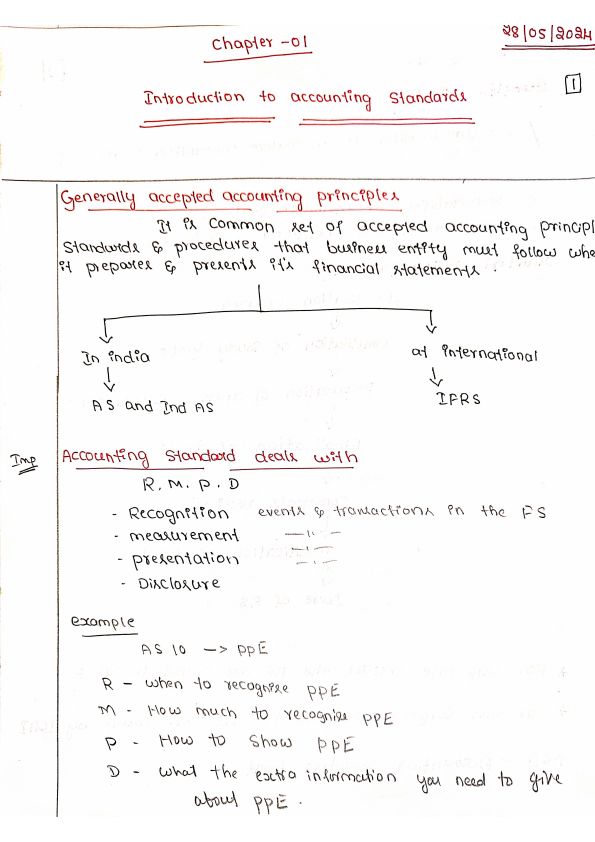 28/05/2024
Chapter -01
1
Introduction to accounting Standards
Generally accepted accounting principles
It is Common set of accepted accounting principl
Standards & procedures that business entity must follow whe
it prepares & presents it's financial statements.
In india
at international
AS and Ind AS
IFRS
Imp
Accounting Standard deals with
R. M. P. D
- Recognition events & transactions in the FS
- measurement —11—
- presentation —11—
- Disclosure —11—
example
AS 10 -> PPE
R - when to recognise PPE
M - How much to recognise PPE
P - How to Show PPE
D - what the extra information you need to give
about PPE.